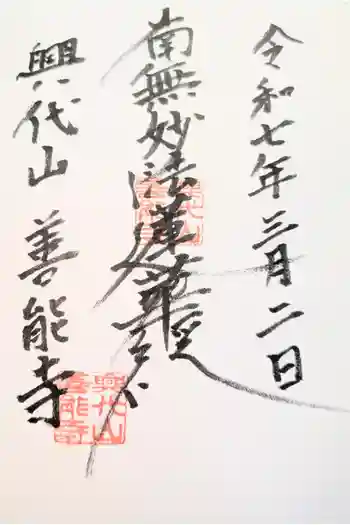 令和七年三月二日
南無妙法蓮華経
興代山 善能寺
興代山
善能寺